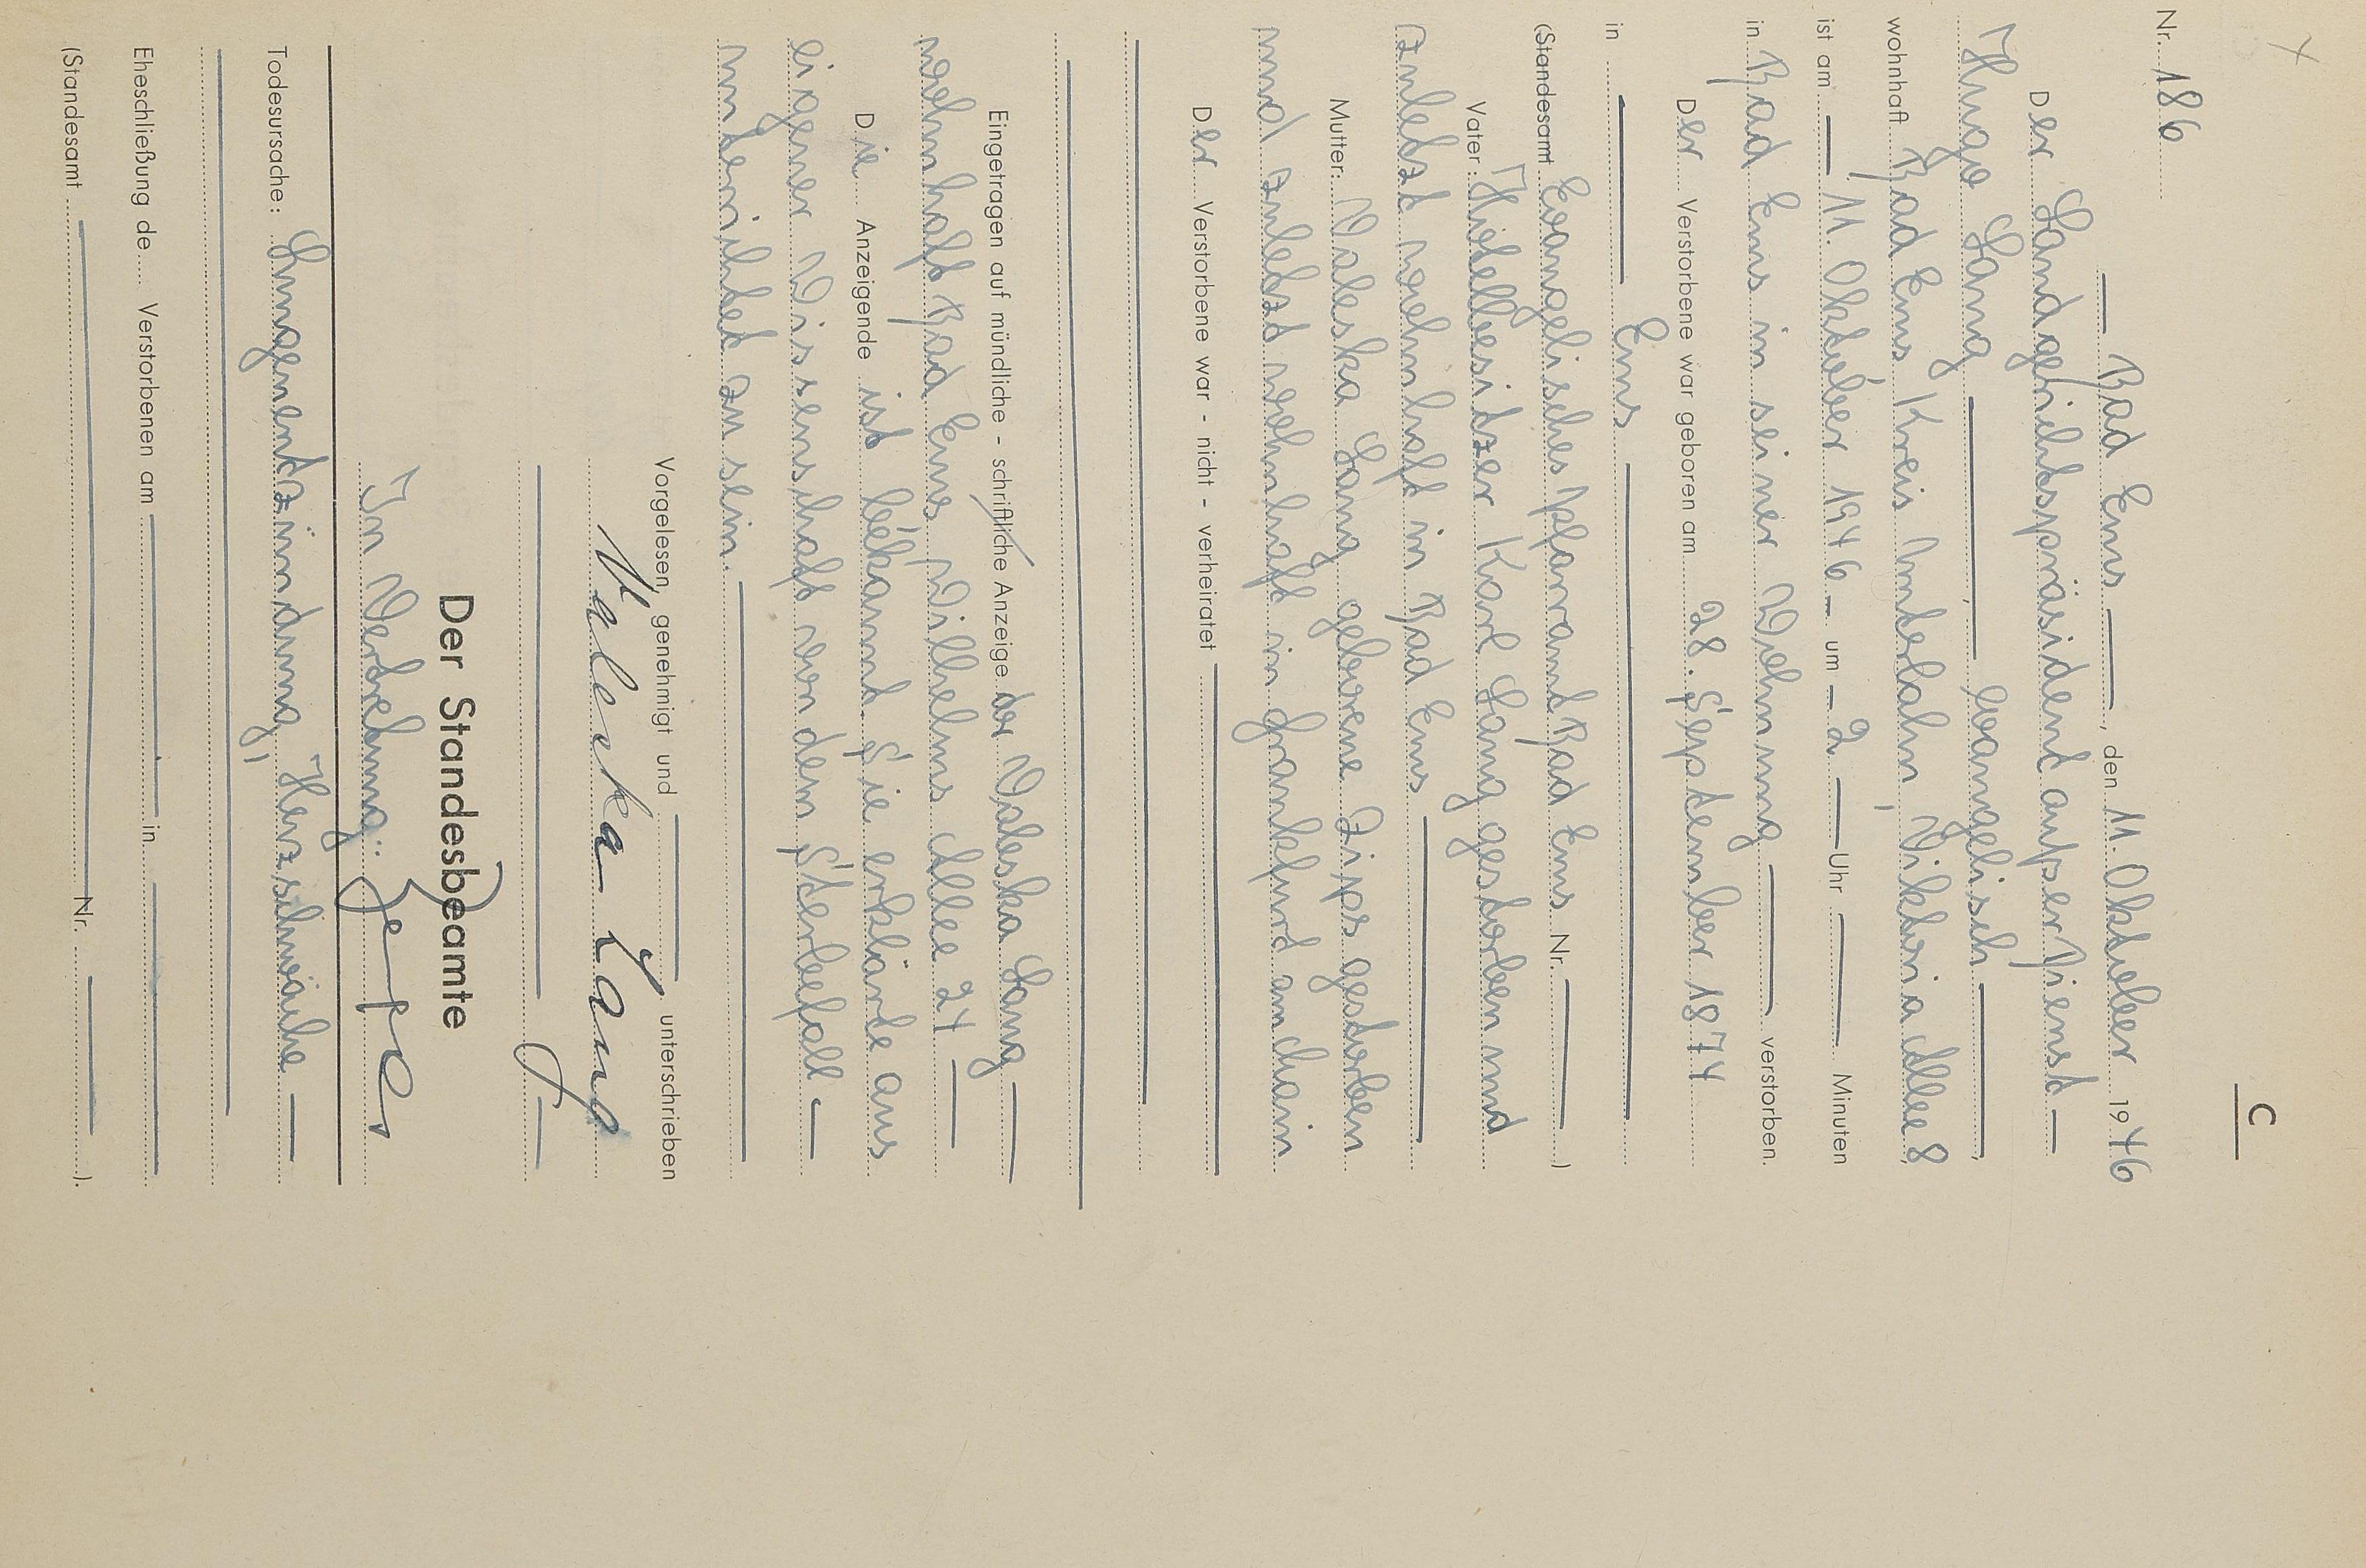 C
Nr. 186
Bad Ems, den 11. Oktober 1946
Der Landgerichtspräsident außer Dienst
Hugo Lang evangelisch
wohnhaft Bad Ems Kreis Unterlahn, Viktoria Allee 8
ist am 11. Oktober 1946 um 2 Uhr Minuten
in Bad Ems in seiner Wohnung verstorben.
Der Verstorbene war geboren am 28. September 1874
in Ems
(Standesamt Evangelisches Pfarramt Bad Ems Nr. )
Vater: Hotelbesitzer Karl Lang gestorben und
zuletzt wohnhaft in Bad Ems
Mutter: Valeska Lang geborene Zips gestorben
und zuletzt wohnhaft in Frankfurt am Main
Der Verstorbene war - nicht - verheiratet
Eingetragen auf mündliche - schriftliche Anzeige der Valeska Lang
wohnhaft Bad Ems, Wilhelms Allee 24
Die Anzeigende ist bekannt. Sie erklärte aus
eigener Wissenschaft von dem Sterbefall
unterrichtet zu sein.
Vorgelesen, genehmigt und unterschrieben
Valeska Lang
Der Standesbeamte
In Vertretung:
Todesursache: Lungenentzündung, Herzschwäche
Eheschließung de Verstorbenen am in
(Standesamt Nr. ).